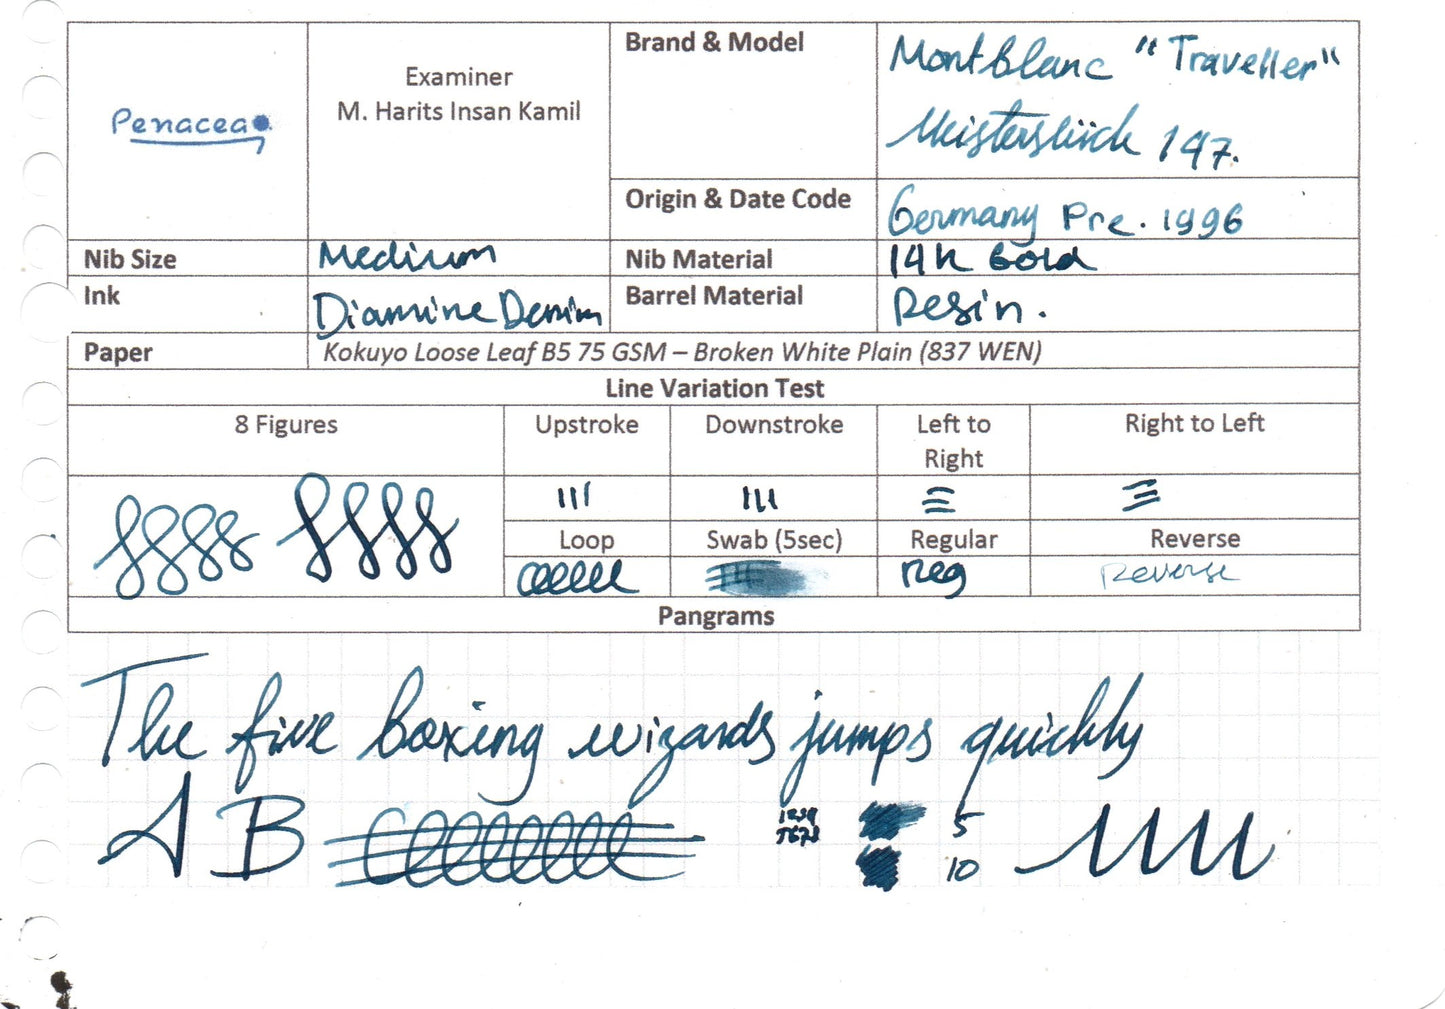 Penacea
Examiner
M. Harits Insan Kamil
Brand & Model
Montblanc "Traveller"
Meisterstück 147.
Origin & Date Code
Germany Pre. 1996
Nib Size
Medium
Nib Material
14k Gold
Ink
Diamine Denim
Barrel Material
Resin.
Paper
Kokuyo Loose Leaf B5 75 GSM – Broken White Plain (837 WEN)
Line Variation Test
8 Figures
Upstroke
Downstroke
Left to
Right
Right to Left
Loop
Swab (5sec)
Regular
Reverse
Reg
Reverse
Pangrams
The five boxing wizards jumps quickly
A B
1234
5678
5
10